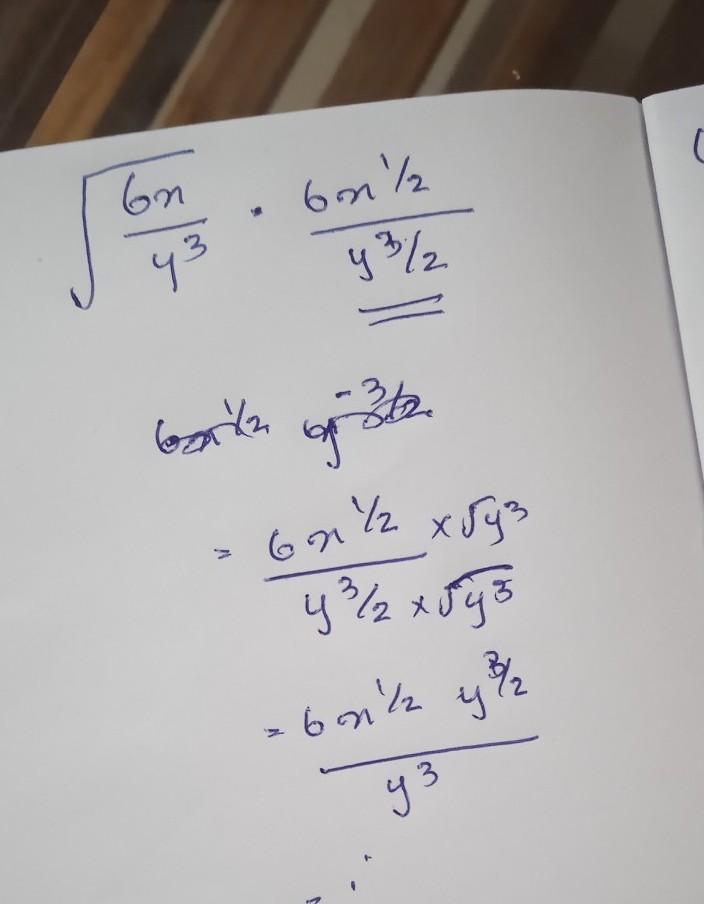 √(6x/y³) · 6x^1/2 / y^3/2
6x^1/2 y^-3/2
= 6x^1/2 × √y³ / y^3/2 × √y³
= 6x^1/2 y^3/2 / y³